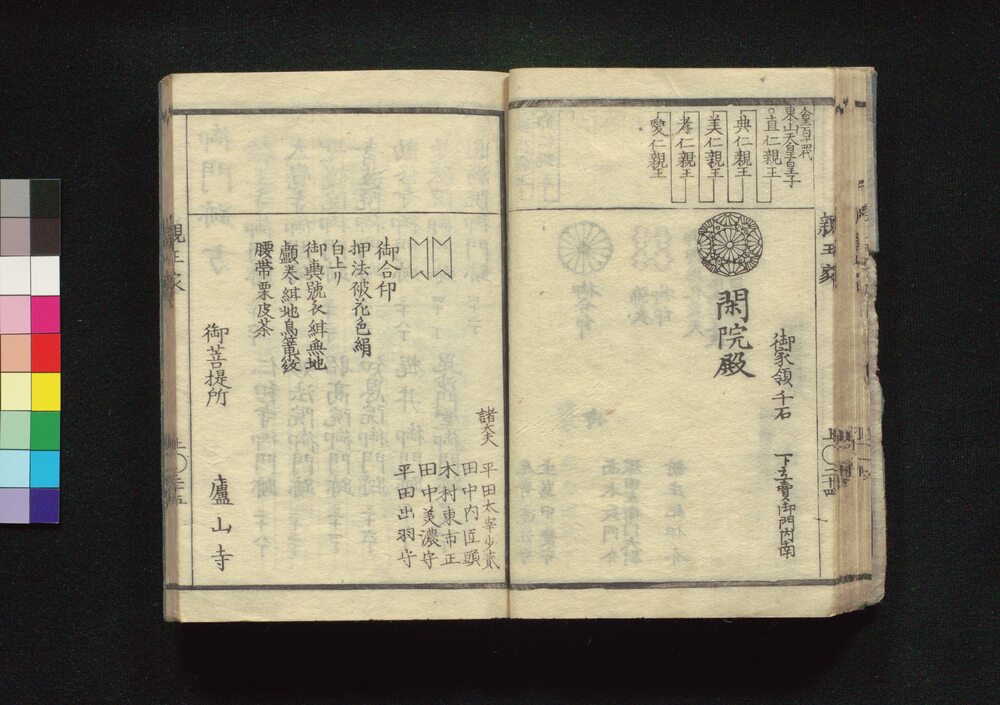 親王家
上〇二十四
人皇百十四代
東山天皇皇子
直仁親王
典仁親王
美仁親王
孝仁親王
愛仁親王
御家領千石
下立賣御門内南
閑院殿
諸大夫
平田太宰少貳
田中内匠頭
木村東市正
田中美濃守
平田出羽守
御合印
押法被花色絹
白上リ
御輿號衣紺無地
腰帯栗皮茶
御菩提所
廬山寺
親王家
上〇二十五